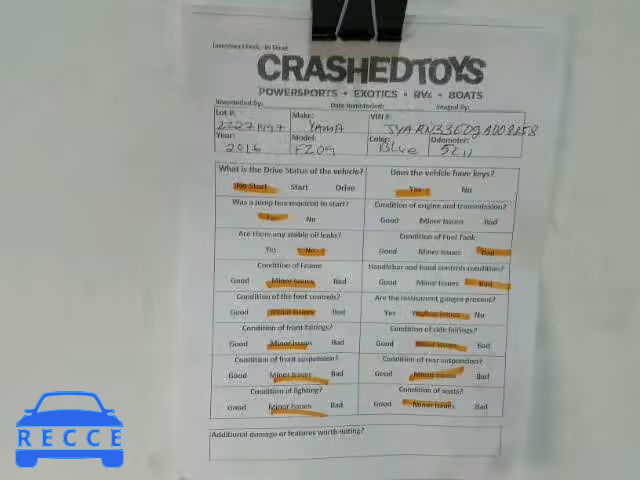 CRASHEDTOYS
POWERSPORTS - EXOTICS - RVs - BOATS
Inventoried By: Date Inventoried: Imaged By:
Lot #: Make: VIN #:
YAMA JYARN33E0GA008258
Year: Model: Color: Odometer:
2016 FZ09 Blue 5211
What is the Drive Status of the vehicle? Does the vehicle have keys?
No Start Start Drive Yes No
Was a jump box required to start? Condition of engine and transmission?
Yes No Good Minor Issues Bad
Are there any visible oil leaks? Condition of Fuel Tank
Yes No Good Minor Issues Bad
Condition of Frame Handlebar and hand controls condition?
Good Minor Issues Bad Good Minor Issues Bad
Condition of the foot controls? Are the instrument gauges present?
Good Minor Issues Bad Yes Yes/but issues No
Condition of front fairings? Condition of side fairings?
Good Minor Issues Bad Good Minor Issues Bad
Condition of front suspension? Condition of rear suspension?
Good Minor Issues Bad Good Minor Issues Bad
Condition of lighting? Condition of seats?
Good Minor Issues Bad Good Minor Issues Bad
Additional damage or features worth noting?
RECCE